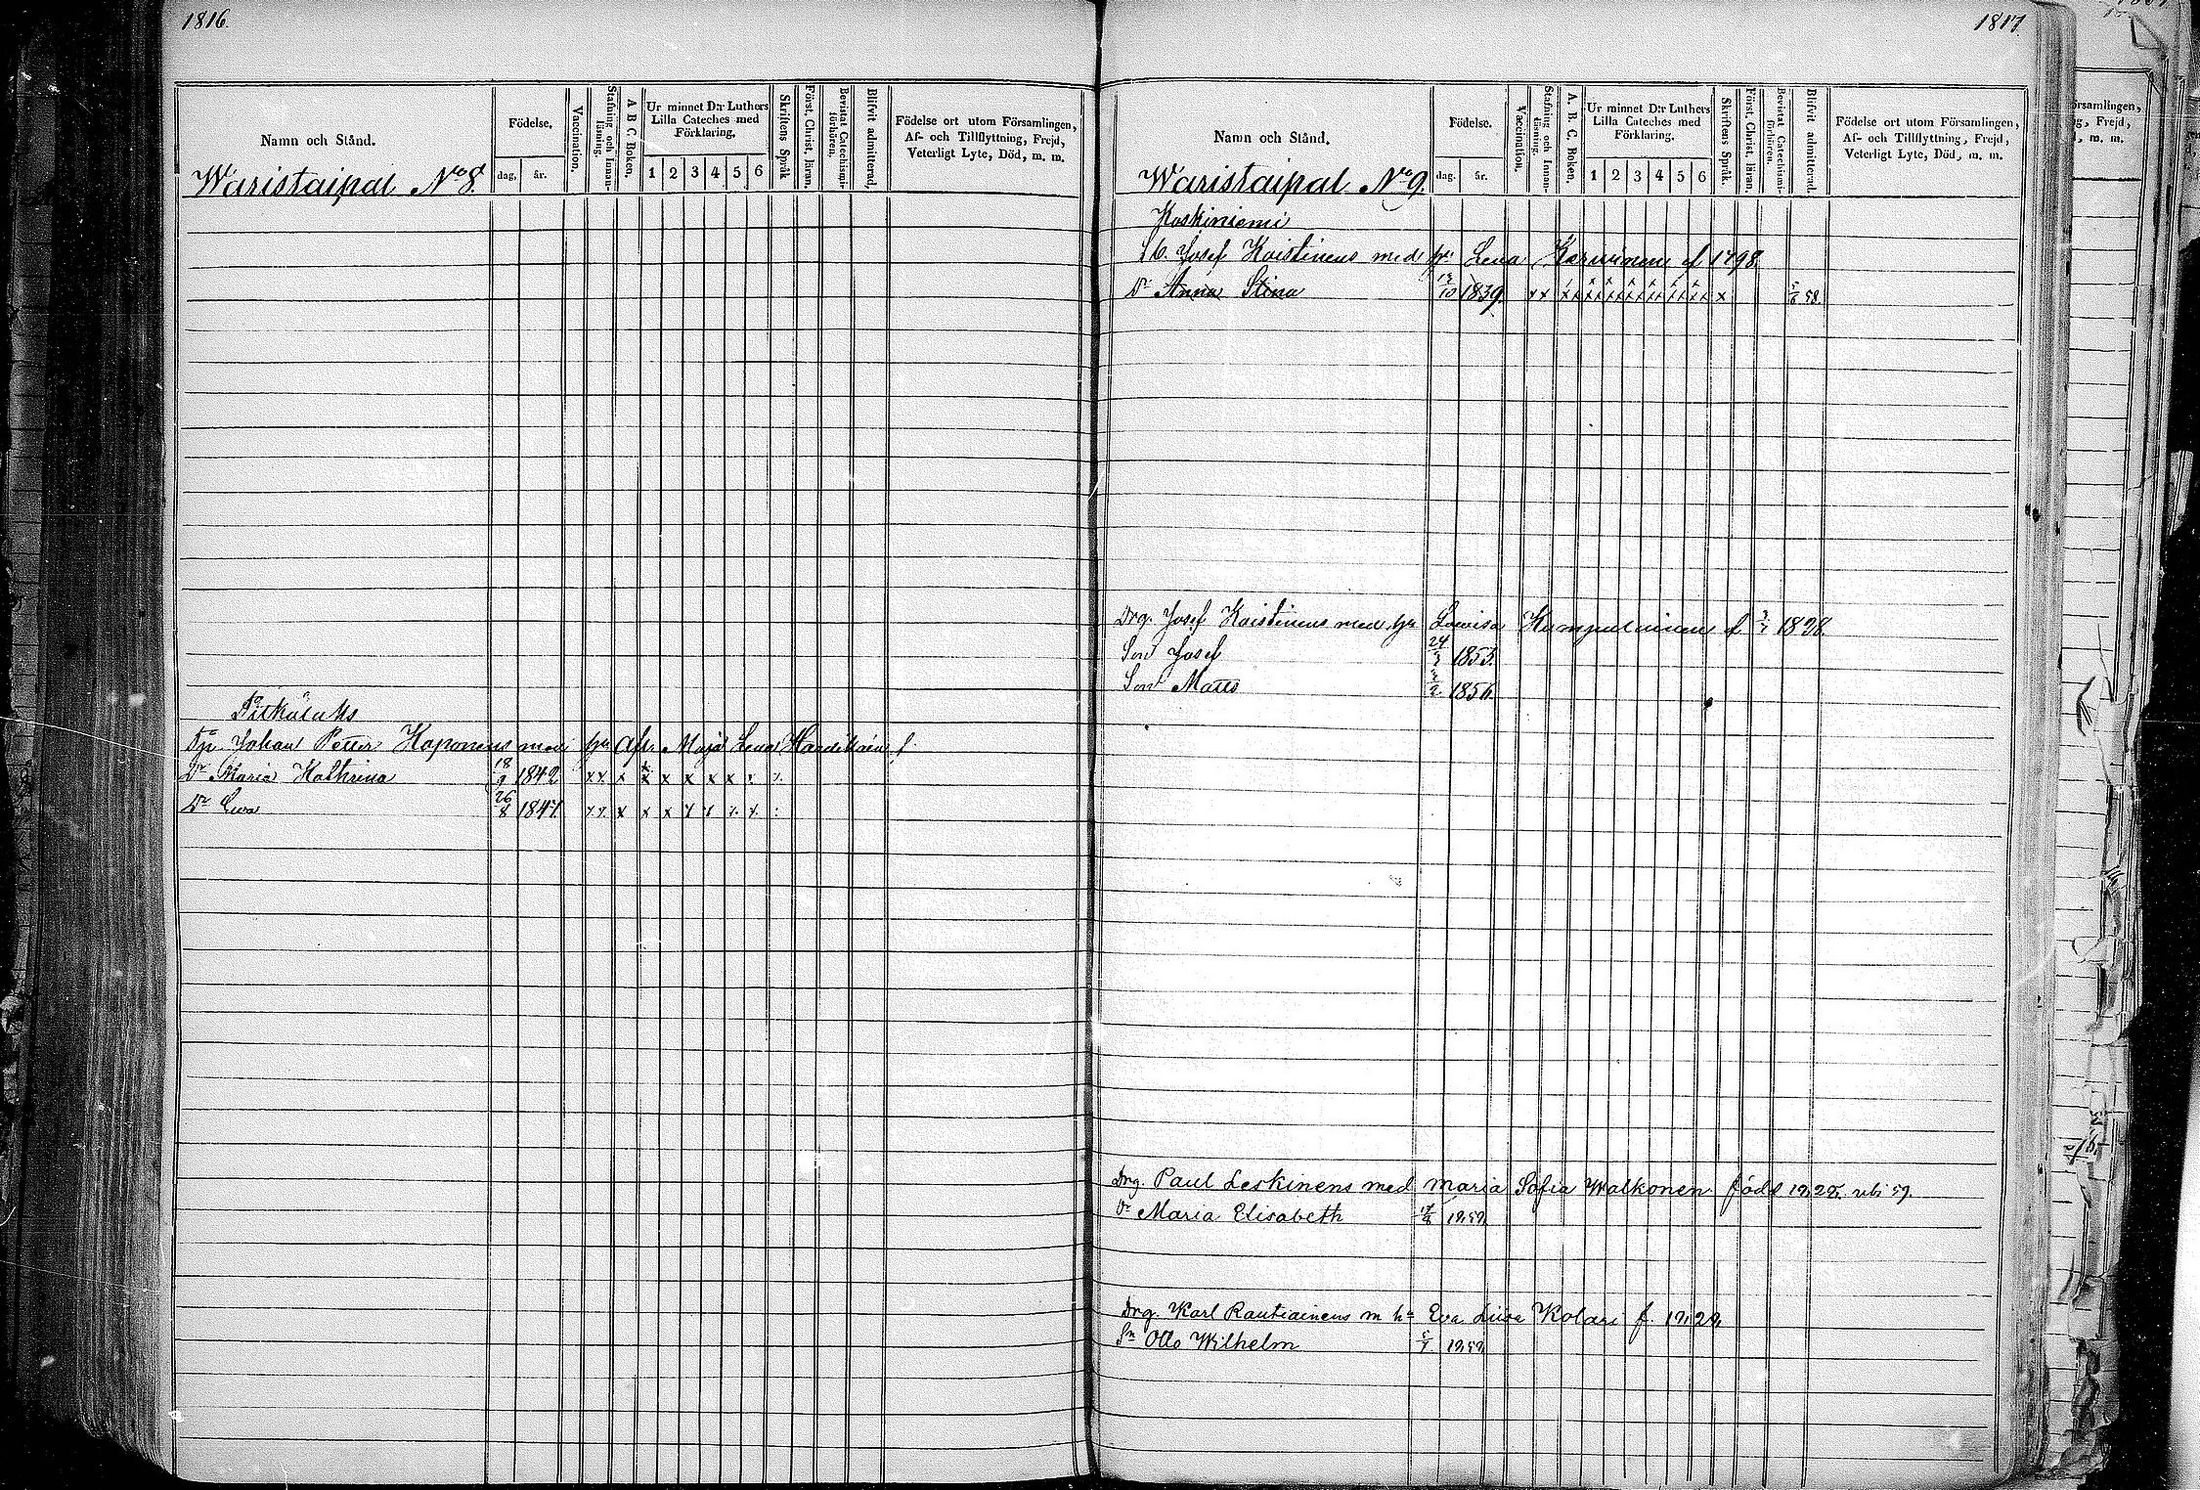 1816.
Namn och Stånd.
Födelse.
dag, år.
Vaccination.
Stafning och Innan-läsning.
A B C. Boken.
Ur minnet D:r Luthers Lilla Cateches med Förklaring.
1 2 3 4 5 6
Skriftens Språk
Först. Christ. läran.
Bevistat Catechismi-förhören.
Blifvit admitterad.
Födelse ort utom Församlingen, Af- och Tillflyttning, Frejd, Veterligt Lyte, Död, m. m.
Waristaipal No 8.
Pitkälaks
Johan Petter Koponens med hu Maja Lena
Dr Maria Kathrina 18/9 1842 x x x x x x x x x
Dr Ewa 26/8 1847. x x x x x x x x x
1817.
Namn och Stånd.
Födelse.
dag. år.
Vaccination.
Stafning och Innan-läsning.
A. B. C. Boken.
Ur minnet D:r Luthers Lilla Cateches med Förklaring.
1 2 3 4 5 6
Skriftens Språk.
Först. Christ. läran.
Bevistat Catechismi-förhören.
Blifvit admitterad.
Födelse ort utom Församlingen, Af- och Tillflyttning, Frejd, Veterligt Lyte, Död, m. m.
Waristaipal No 9.
Koskiniemi
Josef Koistinens med hu Lena Karvinen f 1798.
Dr Anna Stina 1839. 58.
Drg. Josef Koistinens med hu Lovisa Kumpulainen f 1828.
Son Josef 24/3 1853.
Son Matts 1856.
Drg. Paul Leskinens med Maria Sofia Walkonen född
Dr Maria Elisabeth
Drg. Karl Rautiainens m ha Eva Liisa Kolari f.
Sn Otto Wilhelm